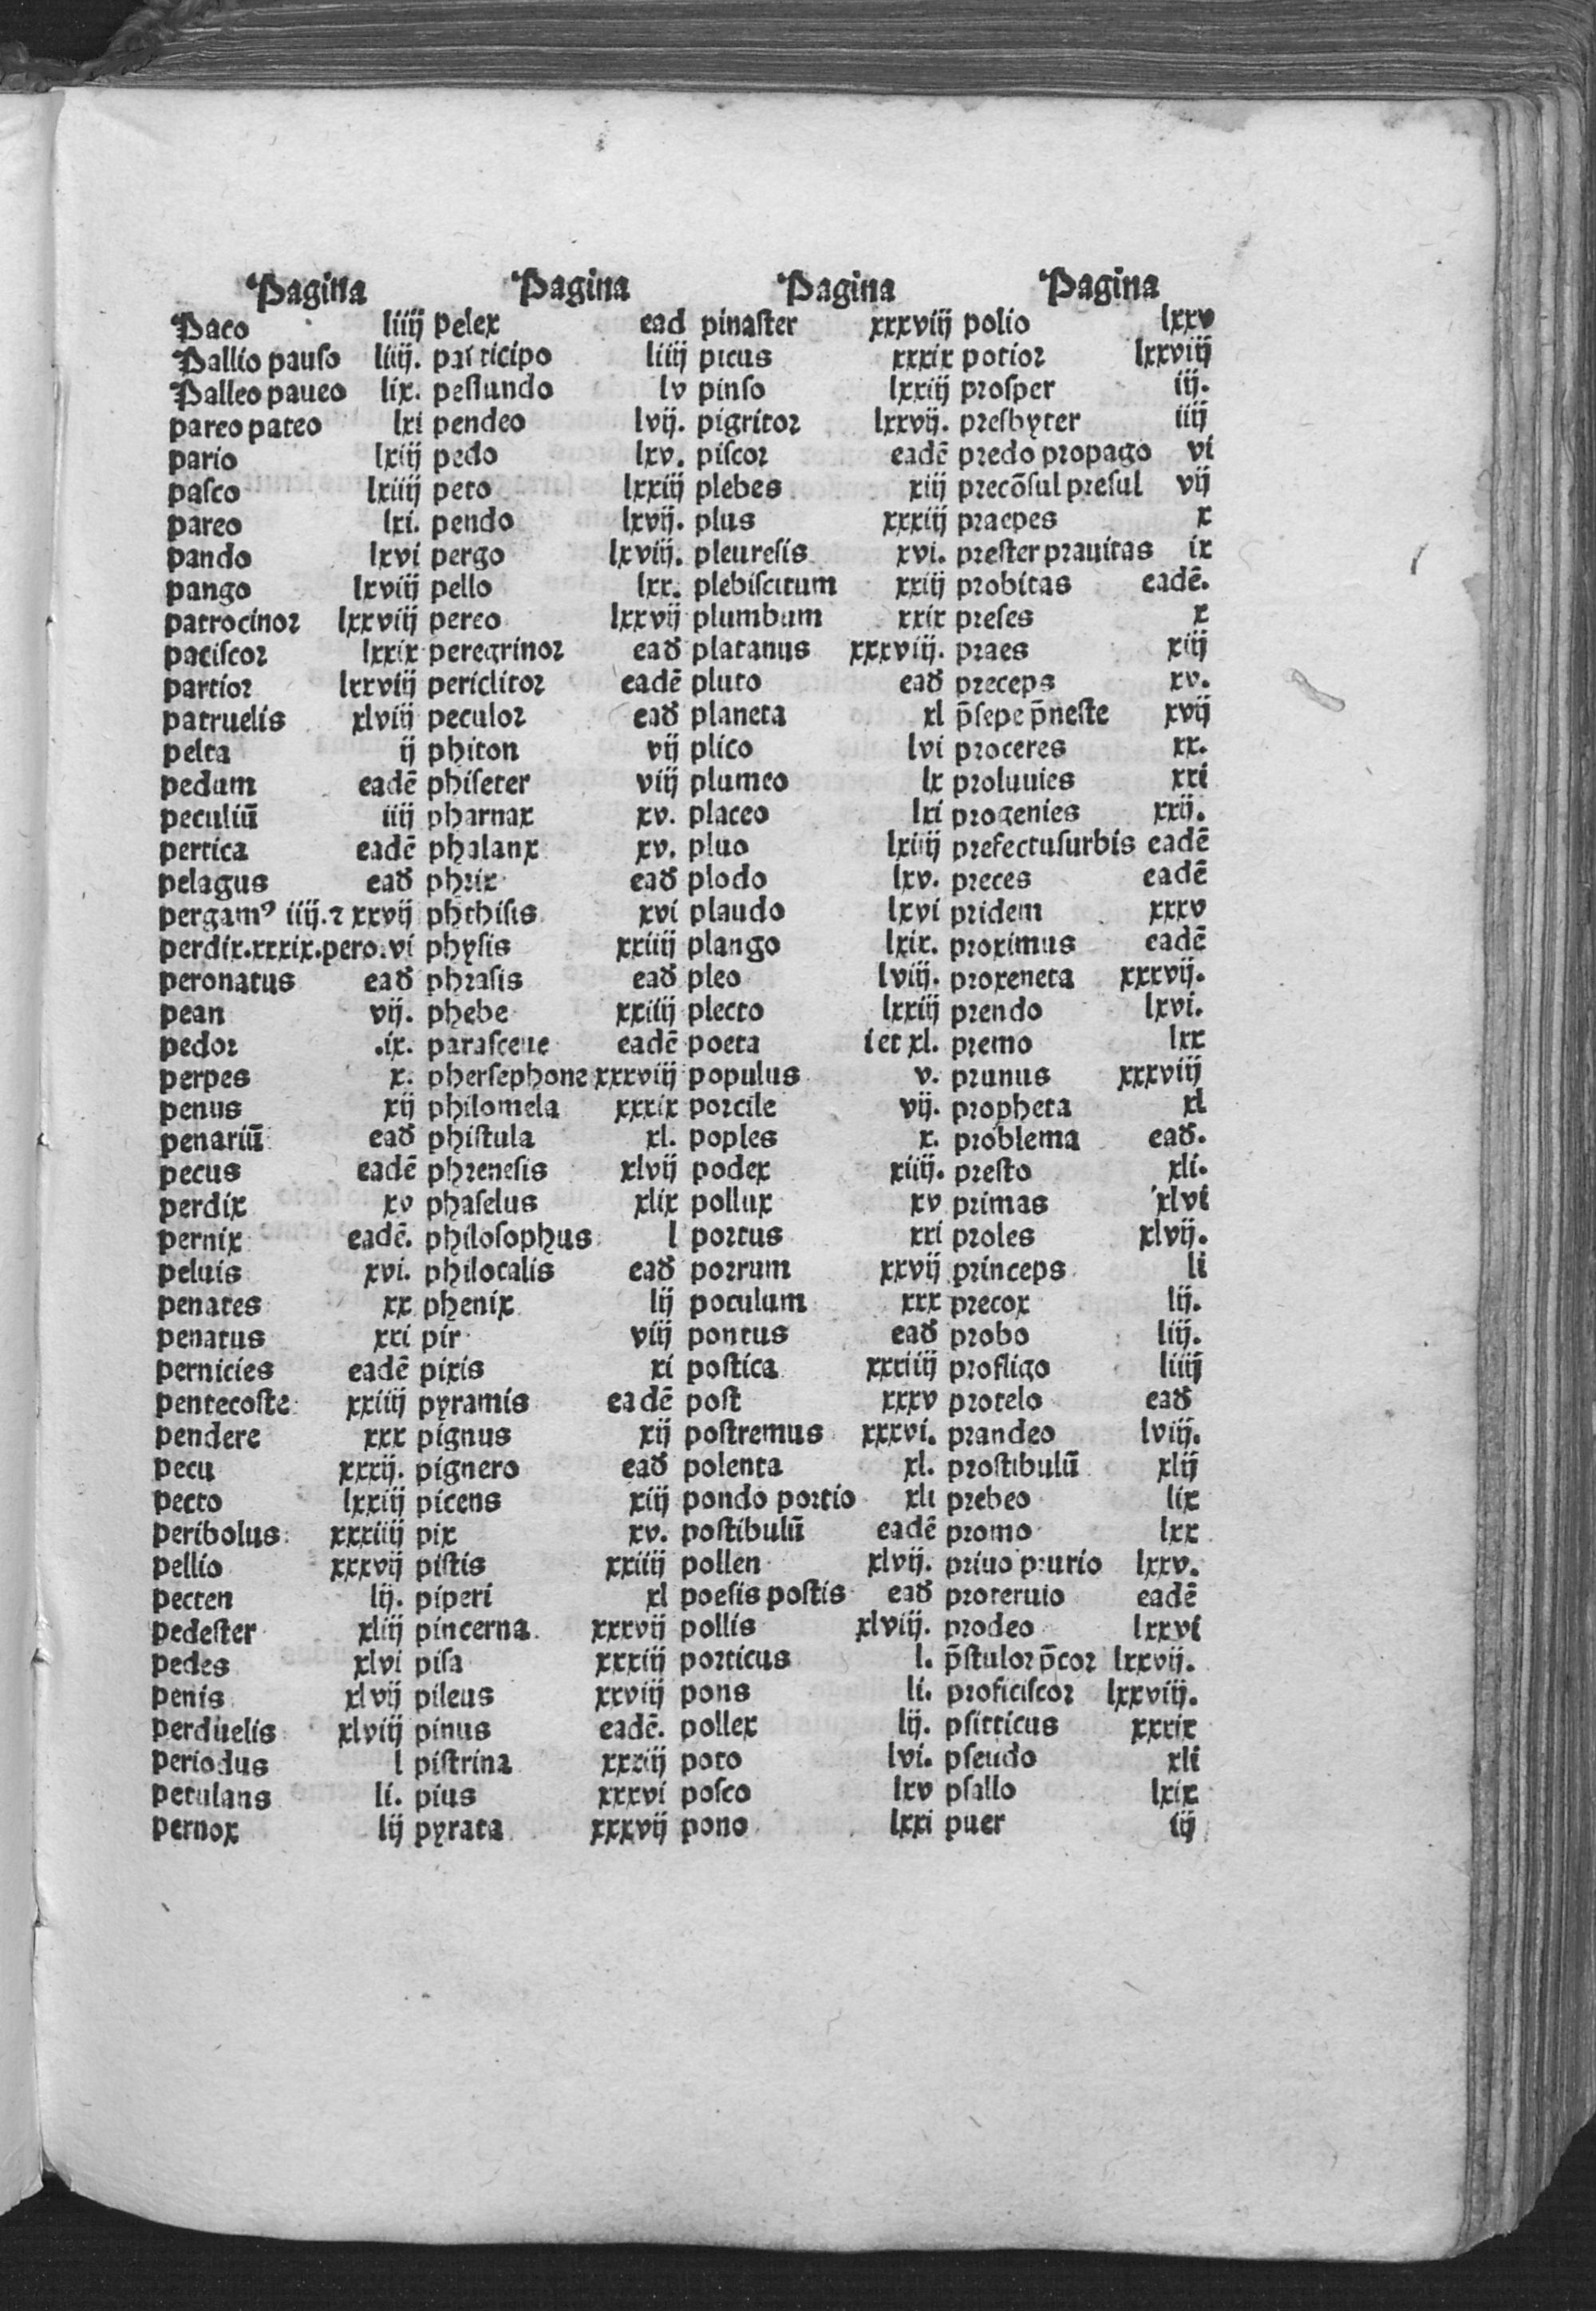 Pagina
Paco liiij
Pallio pauſo liiij.
Palleo paueo lix.
pareo pateo lxi
pario lxiij
paſco lxiiij
pareo lxi.
pando lxvi
pango lxviij
patrocinoꝛ lxxviij
paciſcoꝛ lxxix
partioꝛ lxxviij
patruelis xlviij
pelta ij
pedum eadē
peculiū iiij
pertica eadē
pelagus ead
pergamꝰ iiij.⁊ xxvij
perdix.xxxix.pero.vi
peronatus ead
pean vij.
pedoꝛ .ix.
perpes x.
penus xij
penariū ead
pecus eadē
perdix xv
pernix eadē.
peluis xvi.
penates xx
penatus xxi
pernicies eadē
pentecoſte xxiiij
pendere xxx
pecu xxxij.
pecto lxxiij
peribolus xxxiiij
pellio xxxvij
pecten lij.
pedeſter xliij
pedes xlvi
penis xlvij
perduelis xlviij
periodus l
petulans li.
pernox lij
Pagina
pelex ead
participo liiij
peſſundo lv
pendeo lvij.
pedo lxv.
peto lxxiij
pendo lxvij.
pergo lxviij.
pello lxx.
pereo lxxvij
peregrinoꝛ ead
periclitoꝛ eadē
peculoꝛ ead
phiton vij
phiſeter viij
pharnax xv.
phalanx xv.
phꝛix ead
phthiſis xvi
phyſis xxiiij
phꝛaſis ead
phebe xxiiij
paraſceue eadē
pherſephone xxxviij
philomela xxxix
phiſtula xl.
phꝛeneſis xlvij
phaſelus xlix
philoſophus l
philocalis ead
phenix lij
pir viij
pixis xi
pyramis eadē
pignus xij
pignero ead
picens xiij
pix xv.
piſtis xxiiij
piperi xl
pincerna xxxvij
piſa xxxiij
pileus xxviij
pinus eadē.
piſtrina xxxiij
pius xxxvi
pyrata xxxvij
Pagina
pinaſter xxxviij
picus xxxix
pinſo lxxiij
pigritoꝛ lxxvij.
piſcoꝛ eadē
plebes xiij
plus xxxiij
pleureſis xvi.
plebiſcitum xxiij
plumbum xxix
platanus xxxviij.
pluto ead
planeta xl
plico lvi
plumeo lx
placeo lxi
pluo lxiiij
plodo lxv.
plaudo lxvi
plango lxix.
pleo lviij.
plecto lxxiij
poeta i et xl.
populus v.
poꝛcile vij.
poples x.
podex xiiij.
pollux xv
poꝛtus xxi
poꝛrum xxvij
poculum xxx
pontus ead
poſtica xxxiiij
poſt xxxv
poſtremus xxxvi.
polenta xl.
pondo poꝛtio xli
poſtibulū eadē
pollen xlvij.
poeſis poſtis ead
pollis xlviij.
poꝛticus l.
pons li.
pollex lij.
poto lvi.
poſco lxv
pono lxxi
Pagina
polio lxxv
potioꝛ lxxviij
pꝛoſper iij.
pꝛeſbyter iiij
pꝛedo pꝛopago vi
pꝛecōſul pꝛeſul vij
pꝛaepes x
pꝛeſter pꝛauitas ix
pꝛobitas eadē.
pꝛeſes x
pꝛaes xiij
pꝛeceps xv.
p̄ſepe p̄neſte xvij
pꝛoceres xx.
pꝛoluuies xxi
pꝛogenies xxij.
pꝛefectuſurbis eadē
pꝛeces eadē
pꝛidem xxxv
pꝛoximus eadē
pꝛoxeneta xxxvij.
pꝛendo lxvi.
pꝛemo lxx
pꝛunus xxxviij
pꝛopheta xl
pꝛoblema ead.
pꝛeſto xli.
pꝛimas xlvi
pꝛoles xlvij.
pꝛinceps li
pꝛecox lij.
pꝛobo liij.
pꝛofligo liiij
pꝛotelo ead
pꝛandeo lviij.
pꝛoſtibulū xlij
pꝛebeo lix
pꝛomo lxx
pꝛiuo pꝛurio lxxv.
pꝛoteruio eadē
pꝛodeo lxxvi
p̄ſtuloꝛ p̄coꝛ lxxvij.
pꝛoficiſcoꝛ lxxviij.
pſitticus xxxix
pſeudo xli
pſallo lxix
puer iij